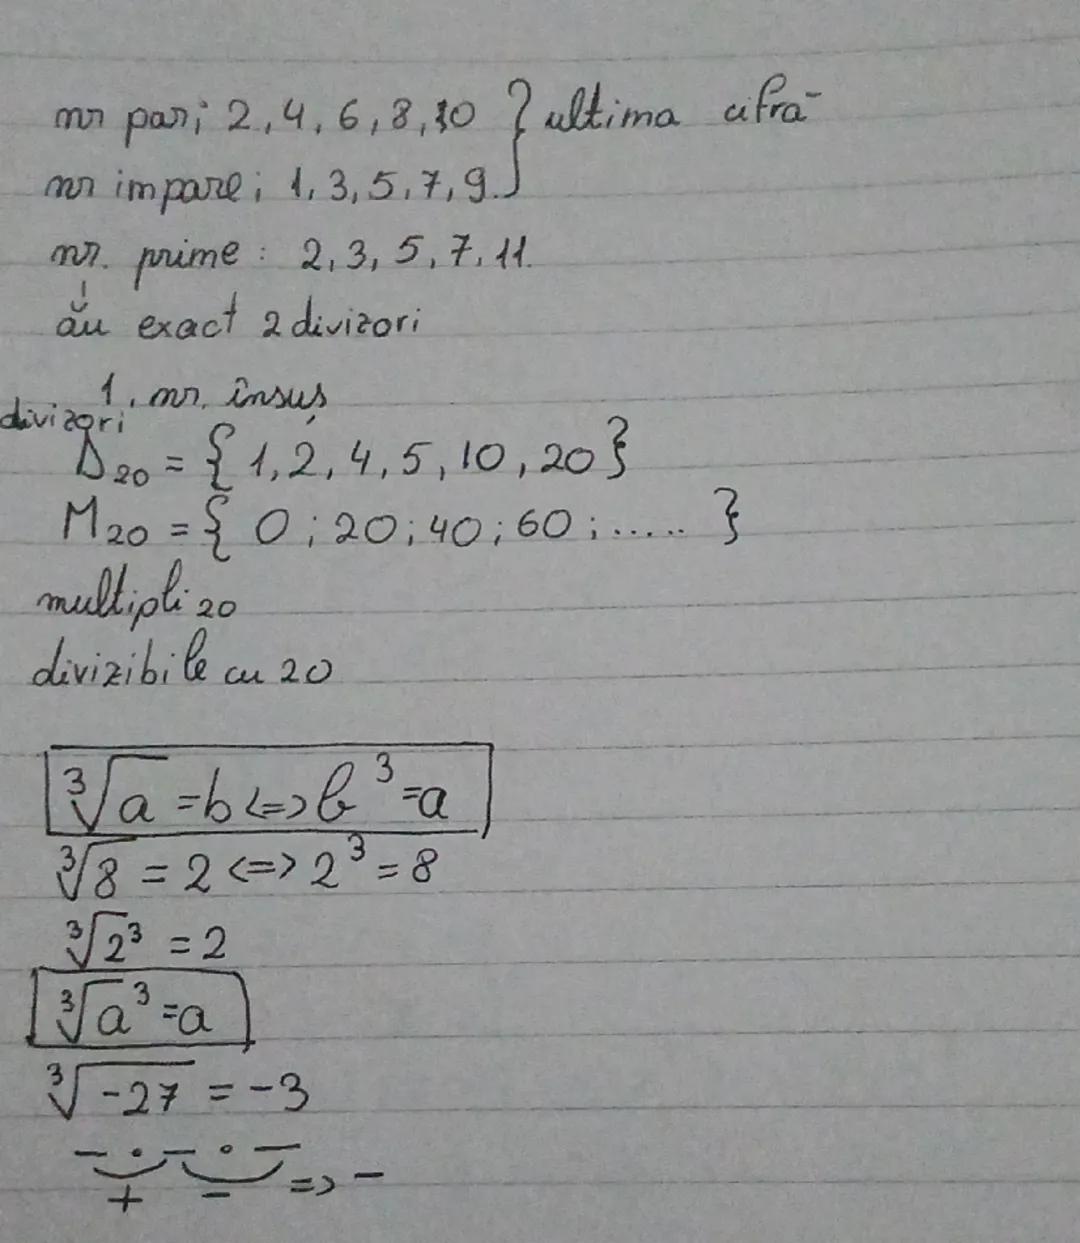 nr pari; 2, 4, 6, 8, 10 } ultima cifră
nr impare; 1, 3, 5, 7, 9.
nr. prime : 2, 3, 5, 7, 11.
au exact 2 divizori
1, nr. însuși
divizori
D₂₀ = { 1, 2, 4, 5, 10, 20 }
M₂₀ = { 0 ; 20 ; 40 ; 60 ; ..... }
multipli 20
divizibile cu 20
³√a = b <=> b³ = a
³√8 = 2 <=> 2³ = 8
³√2³ = 2
³√a³ = a
³√-27 = -3
- · - · -
+ - => -